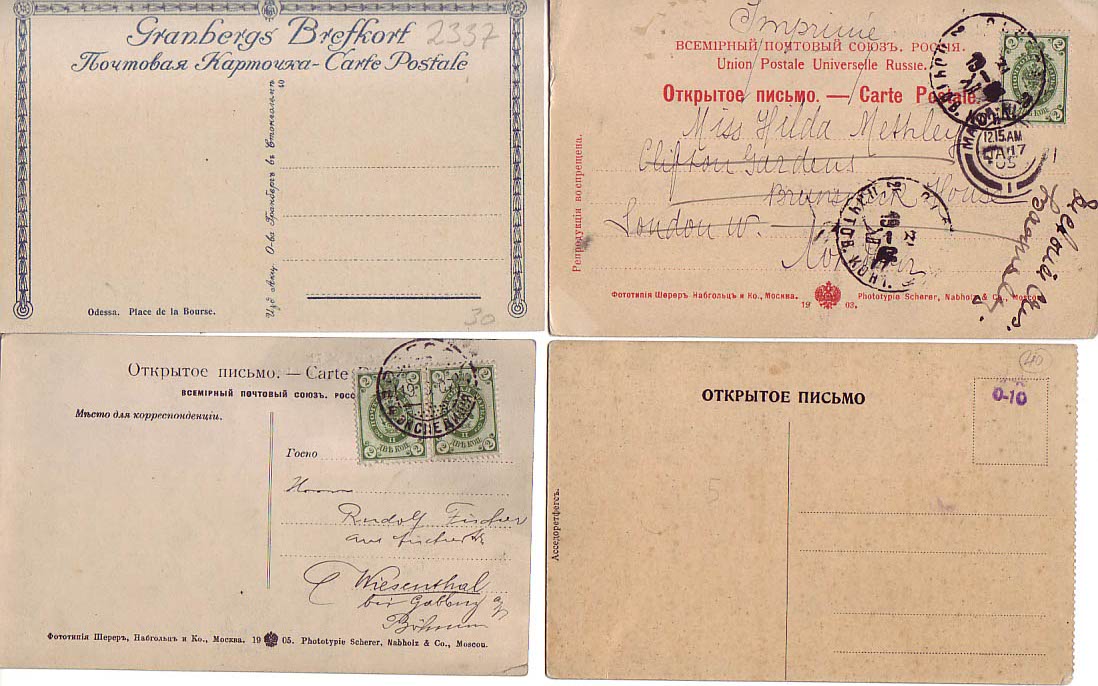 Granbergs Brefkort
2337
Почтовая Карточка - Carte Postale
Изд. Акц. О-ва Гранбергъ въ Стокгольмѣ
40
Odessa. Place de la Bourse.
30
Imprimé
ВСЕМІРНЫЙ ПОЧТОВЫЙ СОЮЗЪ. РОССІЯ.
Union Postale Universelle Russie.
Открытое письмо. — Carte Postale.
Miss Hilda Methley
Clifton Gardens
Brunswick House
London W.
12.15 AM
JA 17
05
1
2
2
Репродукція воспрещена.
Фототипія Шереръ Набгольцъ и Ко., Москва.
19 03.
Phototypie Scherer, Nabholz & Co., Moscou
Открытое письмо. — Carte
ВСЕМІРНЫЙ ПОЧТОВЫЙ СОЮЗЪ. РОСС
Мѣсто для корреспонденціи.
2
2
2
2
ДВѢ КОП.
ДВѢ КОП.
Госпо
Herrn
Rudolf Fischer
Wiesenthal
bei Gablonz
Böhmen
Фототипія Шереръ, Набгольцъ и Ко., Москва. 19 05. Phototypie Scherer, Nabholz & Co., Moscou.
40
0-10
ОТКРЫТОЕ ПИСЬМО
5
Асседоретфегсъ.